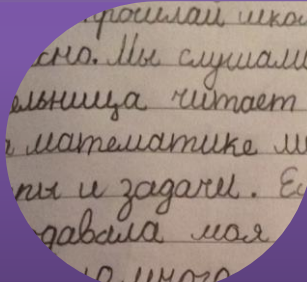 прошлай шко
сно. Мы слушали
ельница читает
математике м
ры и задачи. Ес
давала моя
много